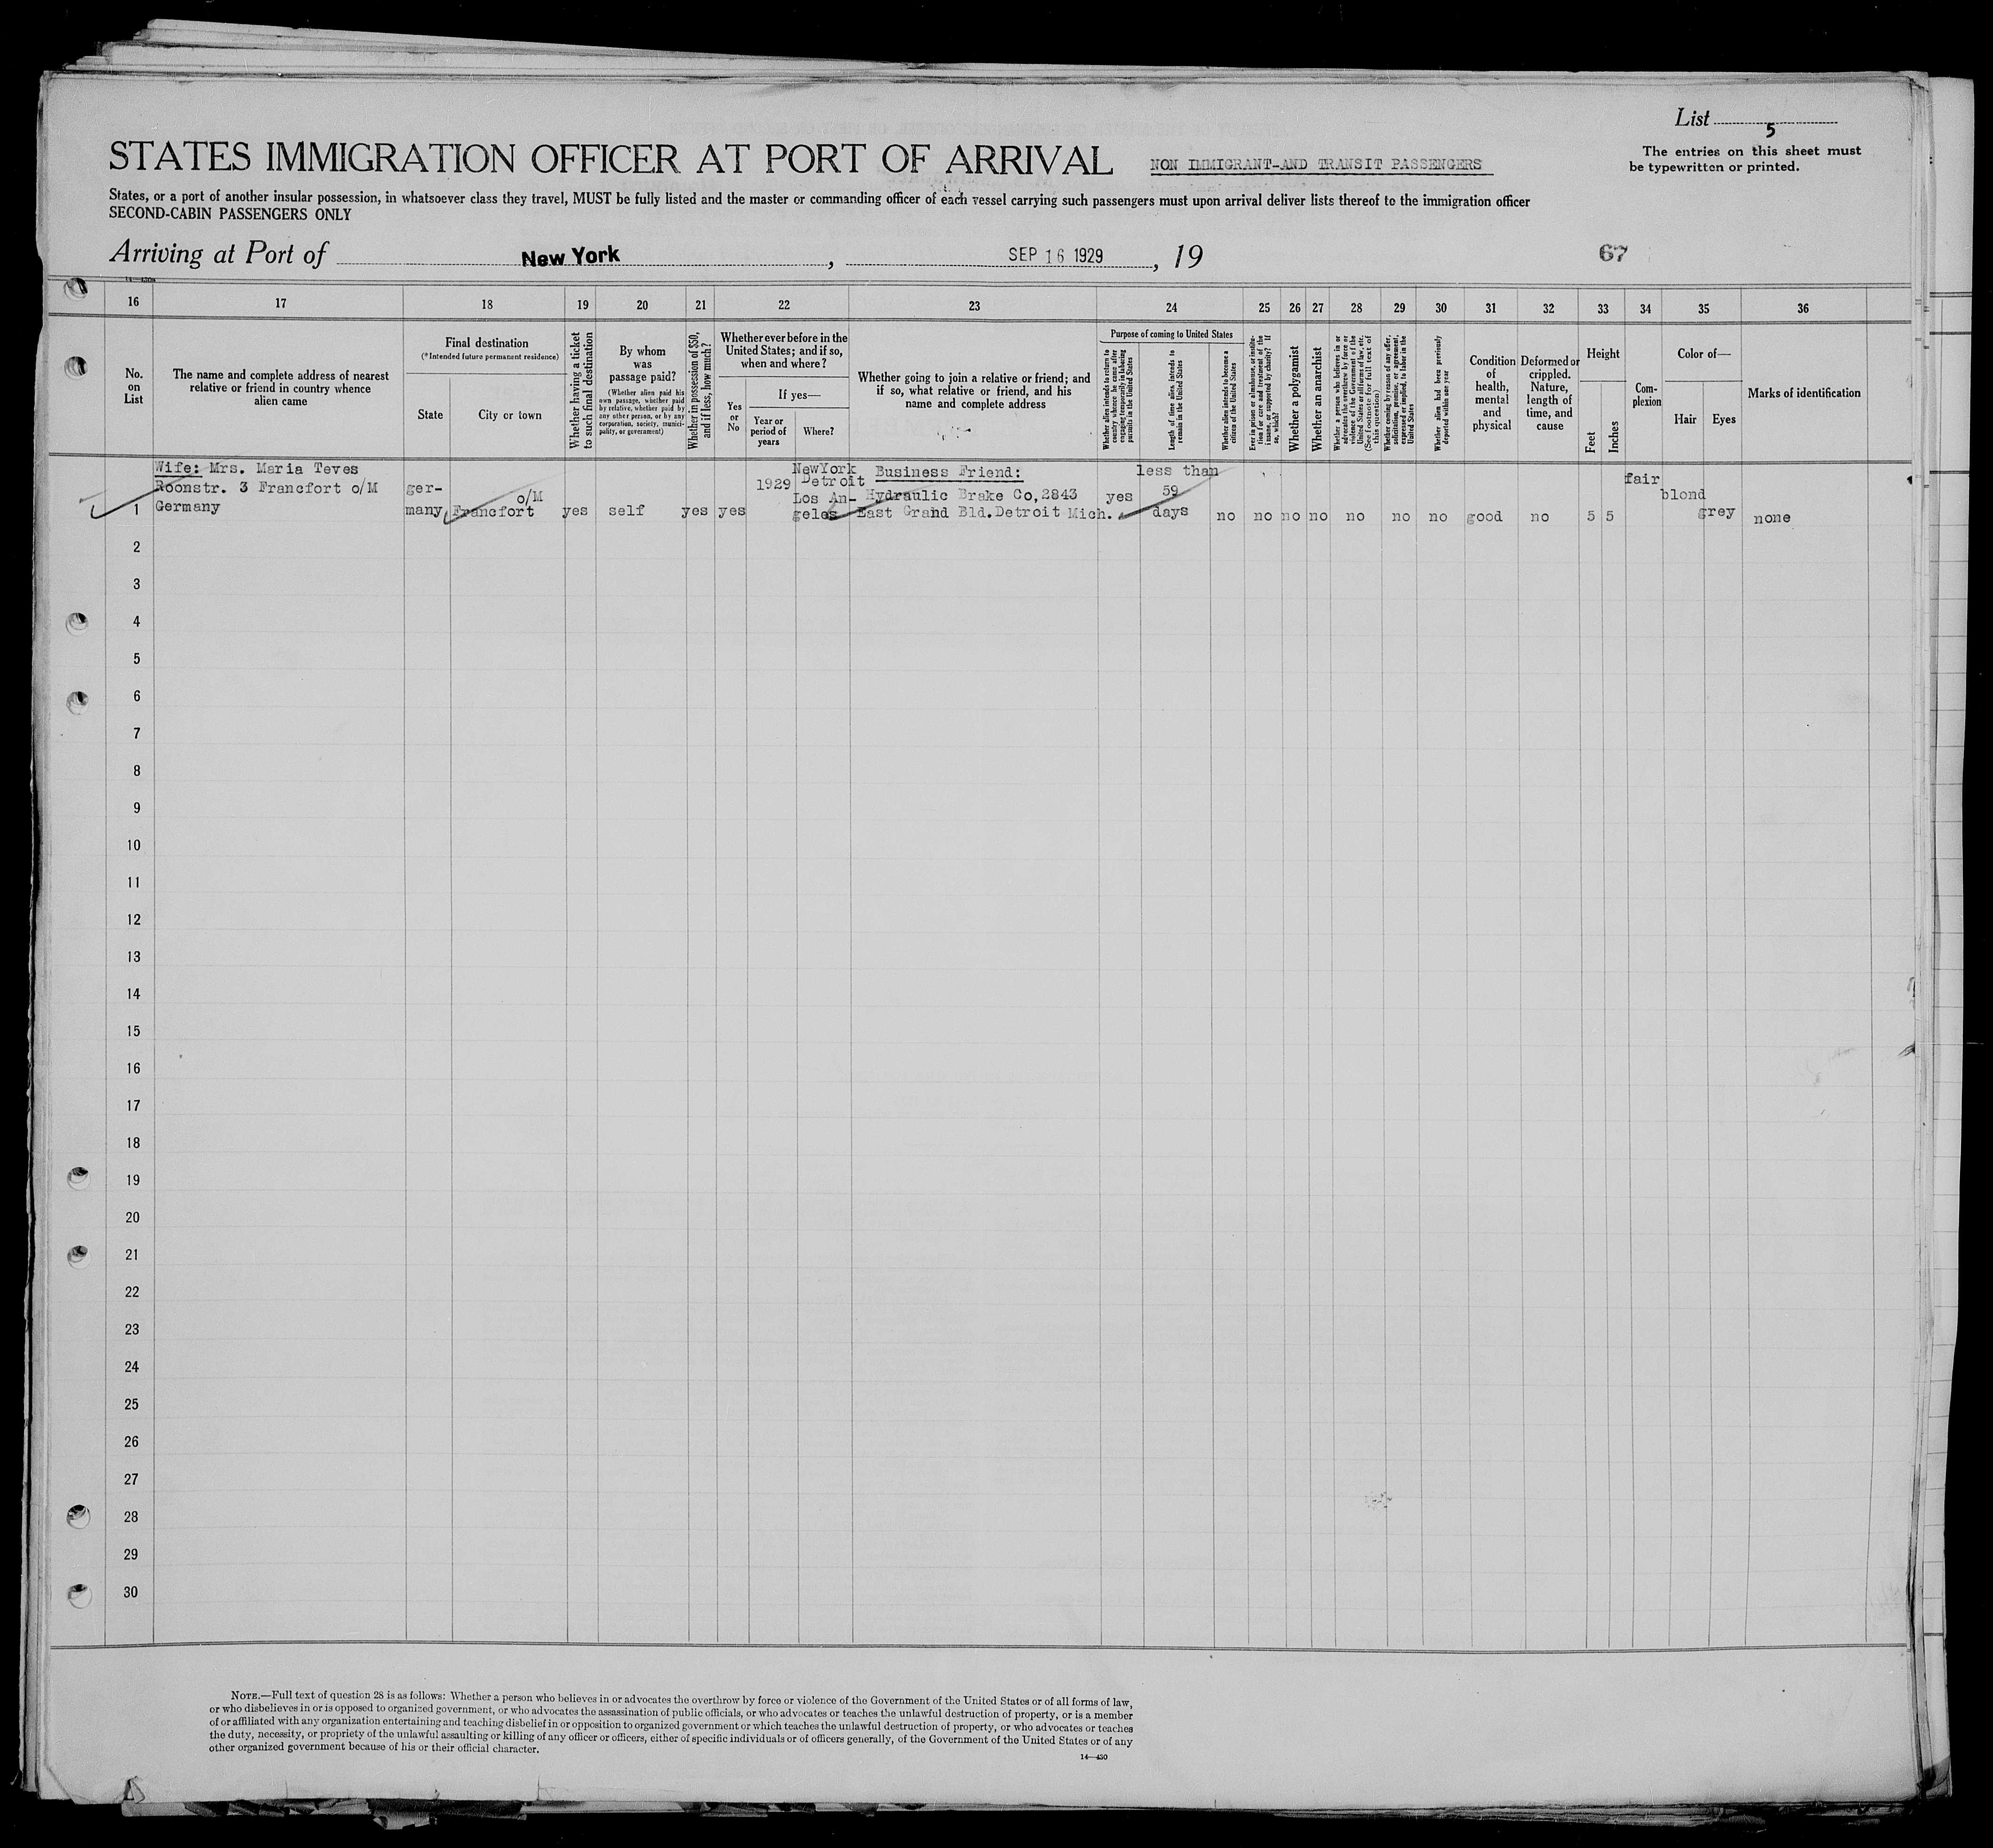 List 5
The entries on this sheet must
be typewritten or printed.
STATES IMMIGRATION OFFICER AT PORT OF ARRIVAL NON IMMIGRANT-AND TRANSIT PASSENGERS
States, or a port of another insular possession, in whatsoever class they travel, MUST be fully listed and the master or commanding officer of each vessel carrying such passengers must upon arrival deliver lists thereof to the immigration officer
SECOND-CABIN PASSENGERS ONLY
Arriving at Port of New York, SEP 16 1929, 19 67
16 17 18 19 20 21 22 23 24 25 26 27 28 29 30 31 32 33 34 35 36
No.
on
List
The name and complete address of nearest
relative or friend in country whence
alien came
Final destination
(*Intended future permanent residence)
State
City or town
Whether having a ticket
to such final destination
By whom
was
passage paid?
(Whether alien paid his
own passage, whether paid
by relative, whether paid by
any other person, or by any
corporation, society, munici-
pality, or government)
Whether in possession of $50,
and if less, how much?
Whether ever before in the
United States; and if so,
when and where?
Yes
or
No
If yes—
Year or
period of
years
Where?
Whether going to join a relative or friend; and
if so, what relative or friend, and his
name and complete address
Purpose of coming to United States
Whether alien intends to return to
country whence he came after
engaging temporarily in laboring
pursuits in the United States
Length of time alien intends to
remain in the United States
Whether alien intends to become a
citizen of the United States
Ever in prison or almshouse, or institu-
tion for care and treatment of the
insane, or supported by charity? If
so, which?
Whether a polygamist
Whether an anarchist
Whether a person who believes in or
advocates the overthrow by force or
violence of the Government of the
United States or all forms of law, etc.
(See footnote for full text of
this question)
Whether coming by reason of any offer,
solicitation, promise, or agreement,
expressed or implied, to labor in the
United States
Whether alien had been previously
deported within one year
Condition
of
health,
mental
and
physical
Deformed or
crippled.
Nature,
length of
time, and
cause
Height
Feet
Inches
Com-
plexion
Color of—
Hair
Eyes
Marks of identification
1
Wife: Mrs. Maria Teves
Roonstr. 3 Francfort o/M
Germany
ger-
many
o/M
Francfort
yes
self
yes
yes
1929
NewYork
Detroit
Los An-
geles
Business Friend:
Hydraulic Brake Co,2843
East Grand Bld.Detroit Mich.
yes
less than
59
days
no
no
no
no
no
no
no
good
no
5
5
fair
blond
grey
none
2
3
4
5
6
7
8
9
10
11
12
13
14
15
16
17
18
19
20
21
22
23
24
25
26
27
28
29
30
NOTE.—Full text of question 28 is as follows: Whether a person who believes in or advocates the overthrow by force or violence of the Government of the United States or of all forms of law,
or who disbelieves in or is opposed to organized government, or who advocates the assassination of public officials, or who advocates or teaches the unlawful destruction of property, or is a member
of or affiliated with any organization entertaining and teaching disbelief in or opposition to organized government or which teaches the unlawful destruction of property, or who advocates or teaches
the duty, necessity, or propriety of the unlawful assaulting or killing of any officer or officers, either of specific individuals or of officers generally, of the Government of the United States or of any
other organized government because of his or their official character.
14—430